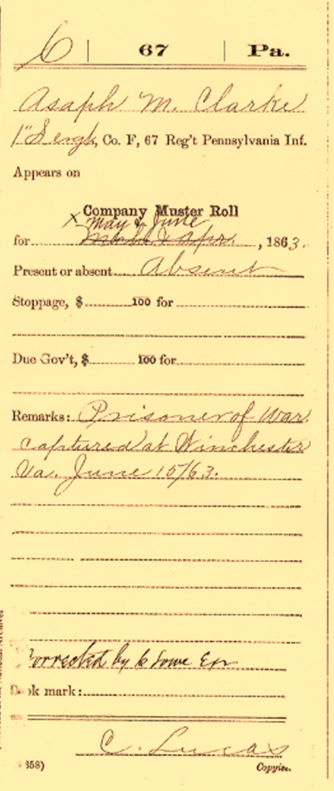 C | 67 | Pa.
Asaph M. Clarke
1" Sergt, Co. F, 67 Reg't Pennsylvania Inf.
Appears on
Company Muster Roll
x May & June
for March & Apr. , 1863.
Present or absent Absent
Stoppage, $ 100 for
Due Gov't, $ 100 for
Remarks: Prisoner of War
captured at Winchester
Va. June 15/63.
orrected by
k mark:
C. Lucas
358) Copyist.